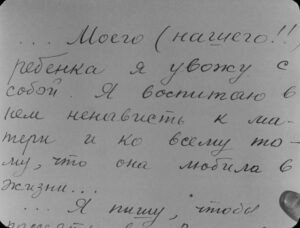 ... Моего (нашего!!)
ребёнка я увожу с
собой. Я воспитаю в
нем ненависть к ма-
тери и ко всему то-
му, что она любила в
жизни...
... Я пишу, чтобы